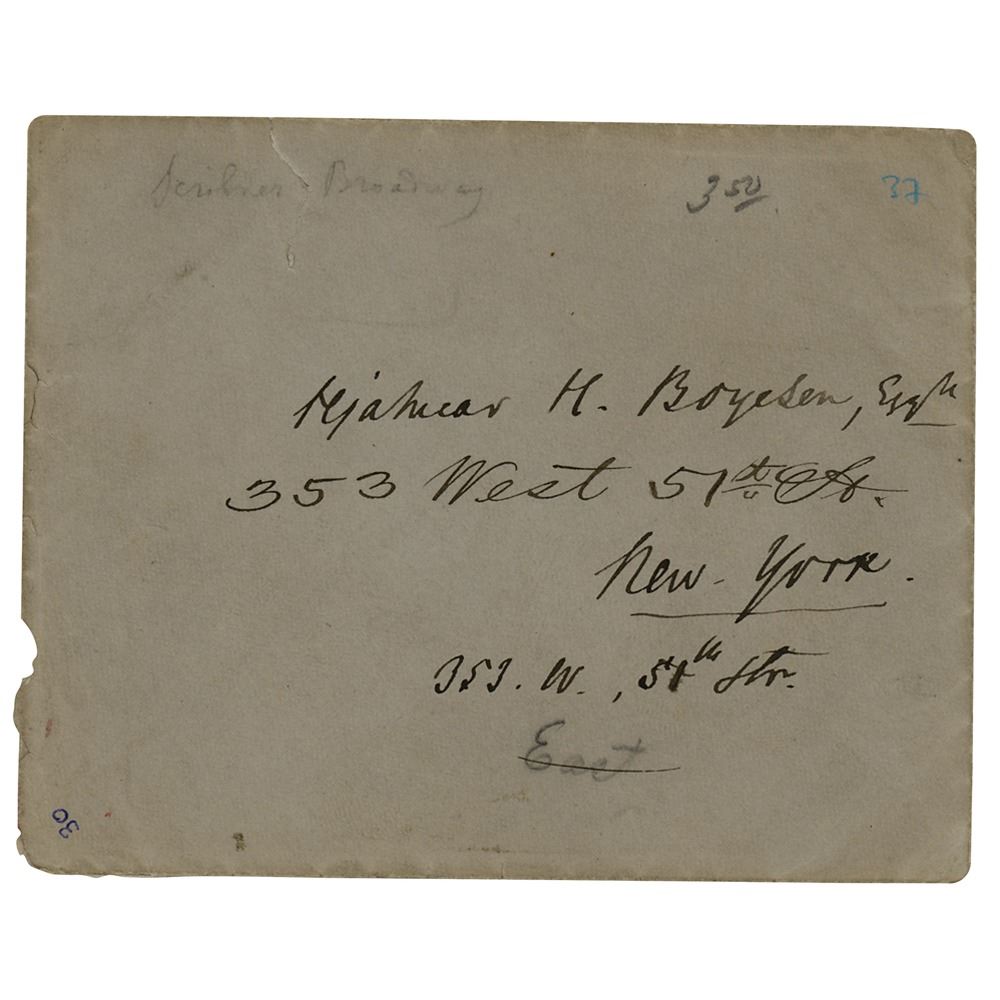 Scribner Broadway
3 50
37
Hjalmar H. Boyesen, Esqr
353 West 51st St.
New-York.
353. W., 51th Str.
East
30